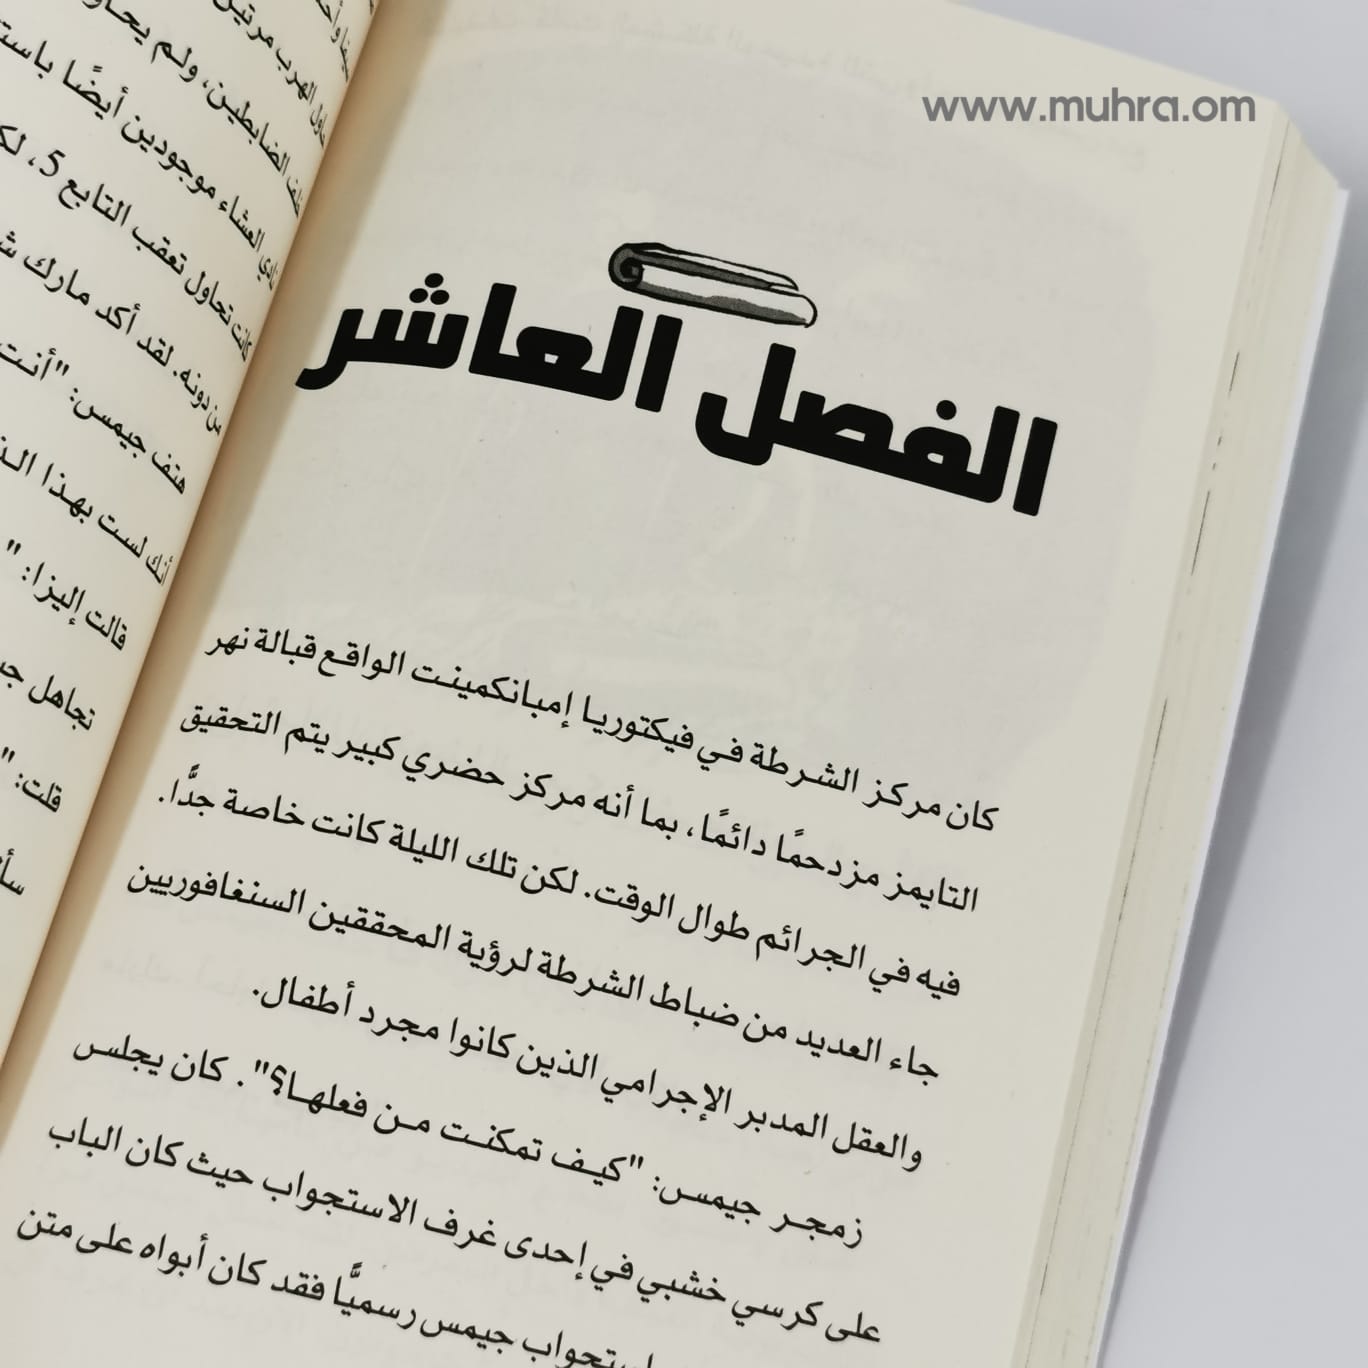 www.muhra.om
حاول الهرب مرتين
خلف الضابطين، ولم يحاو
نادي العشاء موجودين أيضًا باست
كانت تحاول تعقب التابع 5، لك
من دونه. لقد أكد مارك ش
هتف جيمس: "أنت
أنك لست بهذا الذ
قالت إليزا: "
تجاهل جي
قلت: "
سأ
الفصل العاشر
كان مركز الشرطة في فيكتوريا إمبانكمينت الواقع قبالة نهر
التايمز مزدحمًا دائمًا، بما أنه مركز حضري كبير يتم التحقيق
فيه في الجرائم طوال الوقت. لكن تلك الليلة كانت خاصة جدًّا.
جاء العديد من ضباط الشرطة لرؤية المحققين السنغافوريين
والعقل المدبر الإجرامي الذين كانوا مجرد أطفال.
زمجر جيمس: "كيف تمكنت من فعلها؟". كان يجلس
على كرسي خشبي في إحدى غرف الاستجواب حيث كان الباب
استجواب جيمس رسميًّا فقد كان أبواه على متن